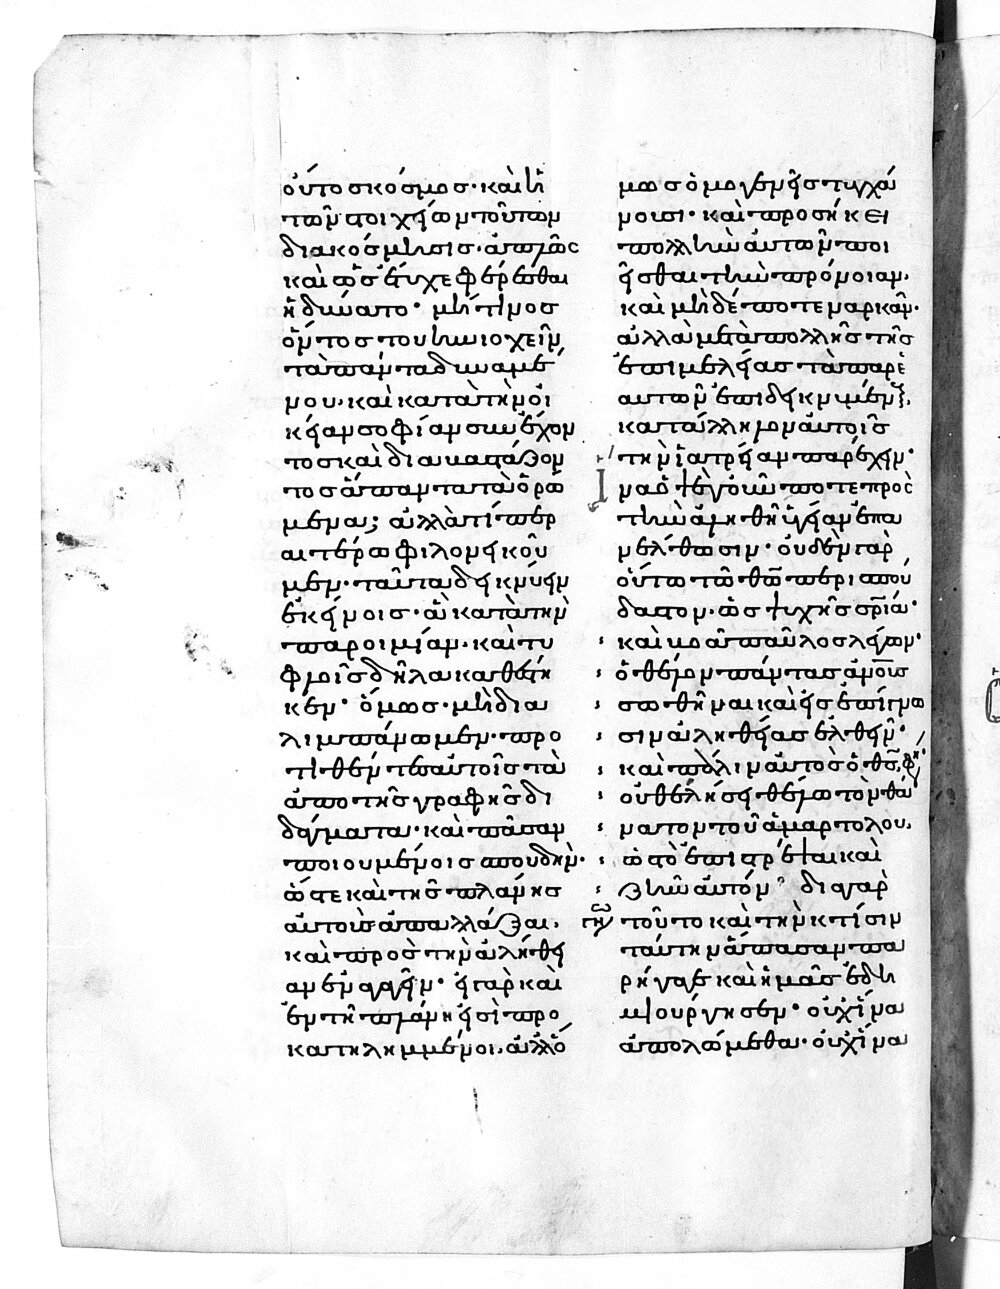 οὗτος κόσμος· καὶ ἡ
τῶν στοιχείων τούτων
διακόσμησις· ἁπλῶς
καὶ ὡς ἔτυχε φέρεσθαι
ἠδύνατο· μή τινος
ὄντος τοῦ ἡνιοχεῖν
τὰ πάντα δυναμέ
νου, καὶ κατὰ τὴν οἰ
κείαν σοφίαν συνέχον
τος καὶ διακατάζον
τος ἅπαντα τὰ ὁρώ
μενα; ἀλλὰ τί περ
αιτέρω φιλονεικοῦ
μεν· ταῦτα δεικνύειν
ἐκείνοις· ἃ κατὰ τὴν
παροιμίαν· καὶ τυ
φλοῖς δῆλα καθέστη
κεν· ὅμως· μὴ δια
λιμπάνωμεν· προ
τιθέντες αὐτοῖς τὰ
ἀπὸ τῆς γραφῆς δι
δάγματα· καὶ πᾶσαν
ποιουμένοις σπουδὴν·
ὥστε καὶ τῆς πλάνης
αὐτοὺς ἀπαλλάξαι,
καὶ πρὸς τὴν ἀλήθει
αν ἐναγαγεῖν· εἰ γὰρ καὶ
ἐν τῆ πλάνη εἰσὶ προ
κατηλημμένοι, ἀλλ᾽ ὁ
μως ὁμογενεῖς τυγχά
νουσι· καὶ προσήκει
πολλὴν αὐτῶν ποι
εῖσθαι τὴν πρόνοιαν·
καὶ μηδέποτε ναρκᾶν·
ἀλλὰ μετὰ πολλῆς τῆς
ἐπιμελείας τὰ παρ᾽ ἑ
αυτῶν ἐπιδεικνυμένους,
κατάλληλον αὐτοῖς
τὴν ἰατρείαν παρέχειν·
ἵνα ὀψὲ γοῦν ποτε πρὸς
τὴν ἀληθῆ ὑγείαν ἐπα
νέλθωσιν· οὐδὲν γὰρ
οὕτω τῶ θῶ περισπού
δαστον· ὡς ψυχῆς σρία·
καὶ βοᾶ παῦλος λέγων·
ὁ θέλων πάντας ἀνους
σωθῆναι καὶ εἰς ἐπίγνω
σιν ἀληθείας ἐλθεῖν·
καὶ πάλιν αὐτὸς ὁ θς φη·
οὐ θελήσει θέλω τὸν θά
νατον τοῦ ἁμαρτολοῦ,
ὡς τὸ ἐπιστρέψαι καὶ
ζῆν αὐτόν· διὰ γὰρ
τοῦτο καὶ τὴν κτίσιν
ταύτην ἅπασαν πα
ρήγαγε καὶ ἡμᾶς ἐδη
μιούργησεν· οὐχ ἵνα
ἀπολώμεθα· οὐχ ἵνα